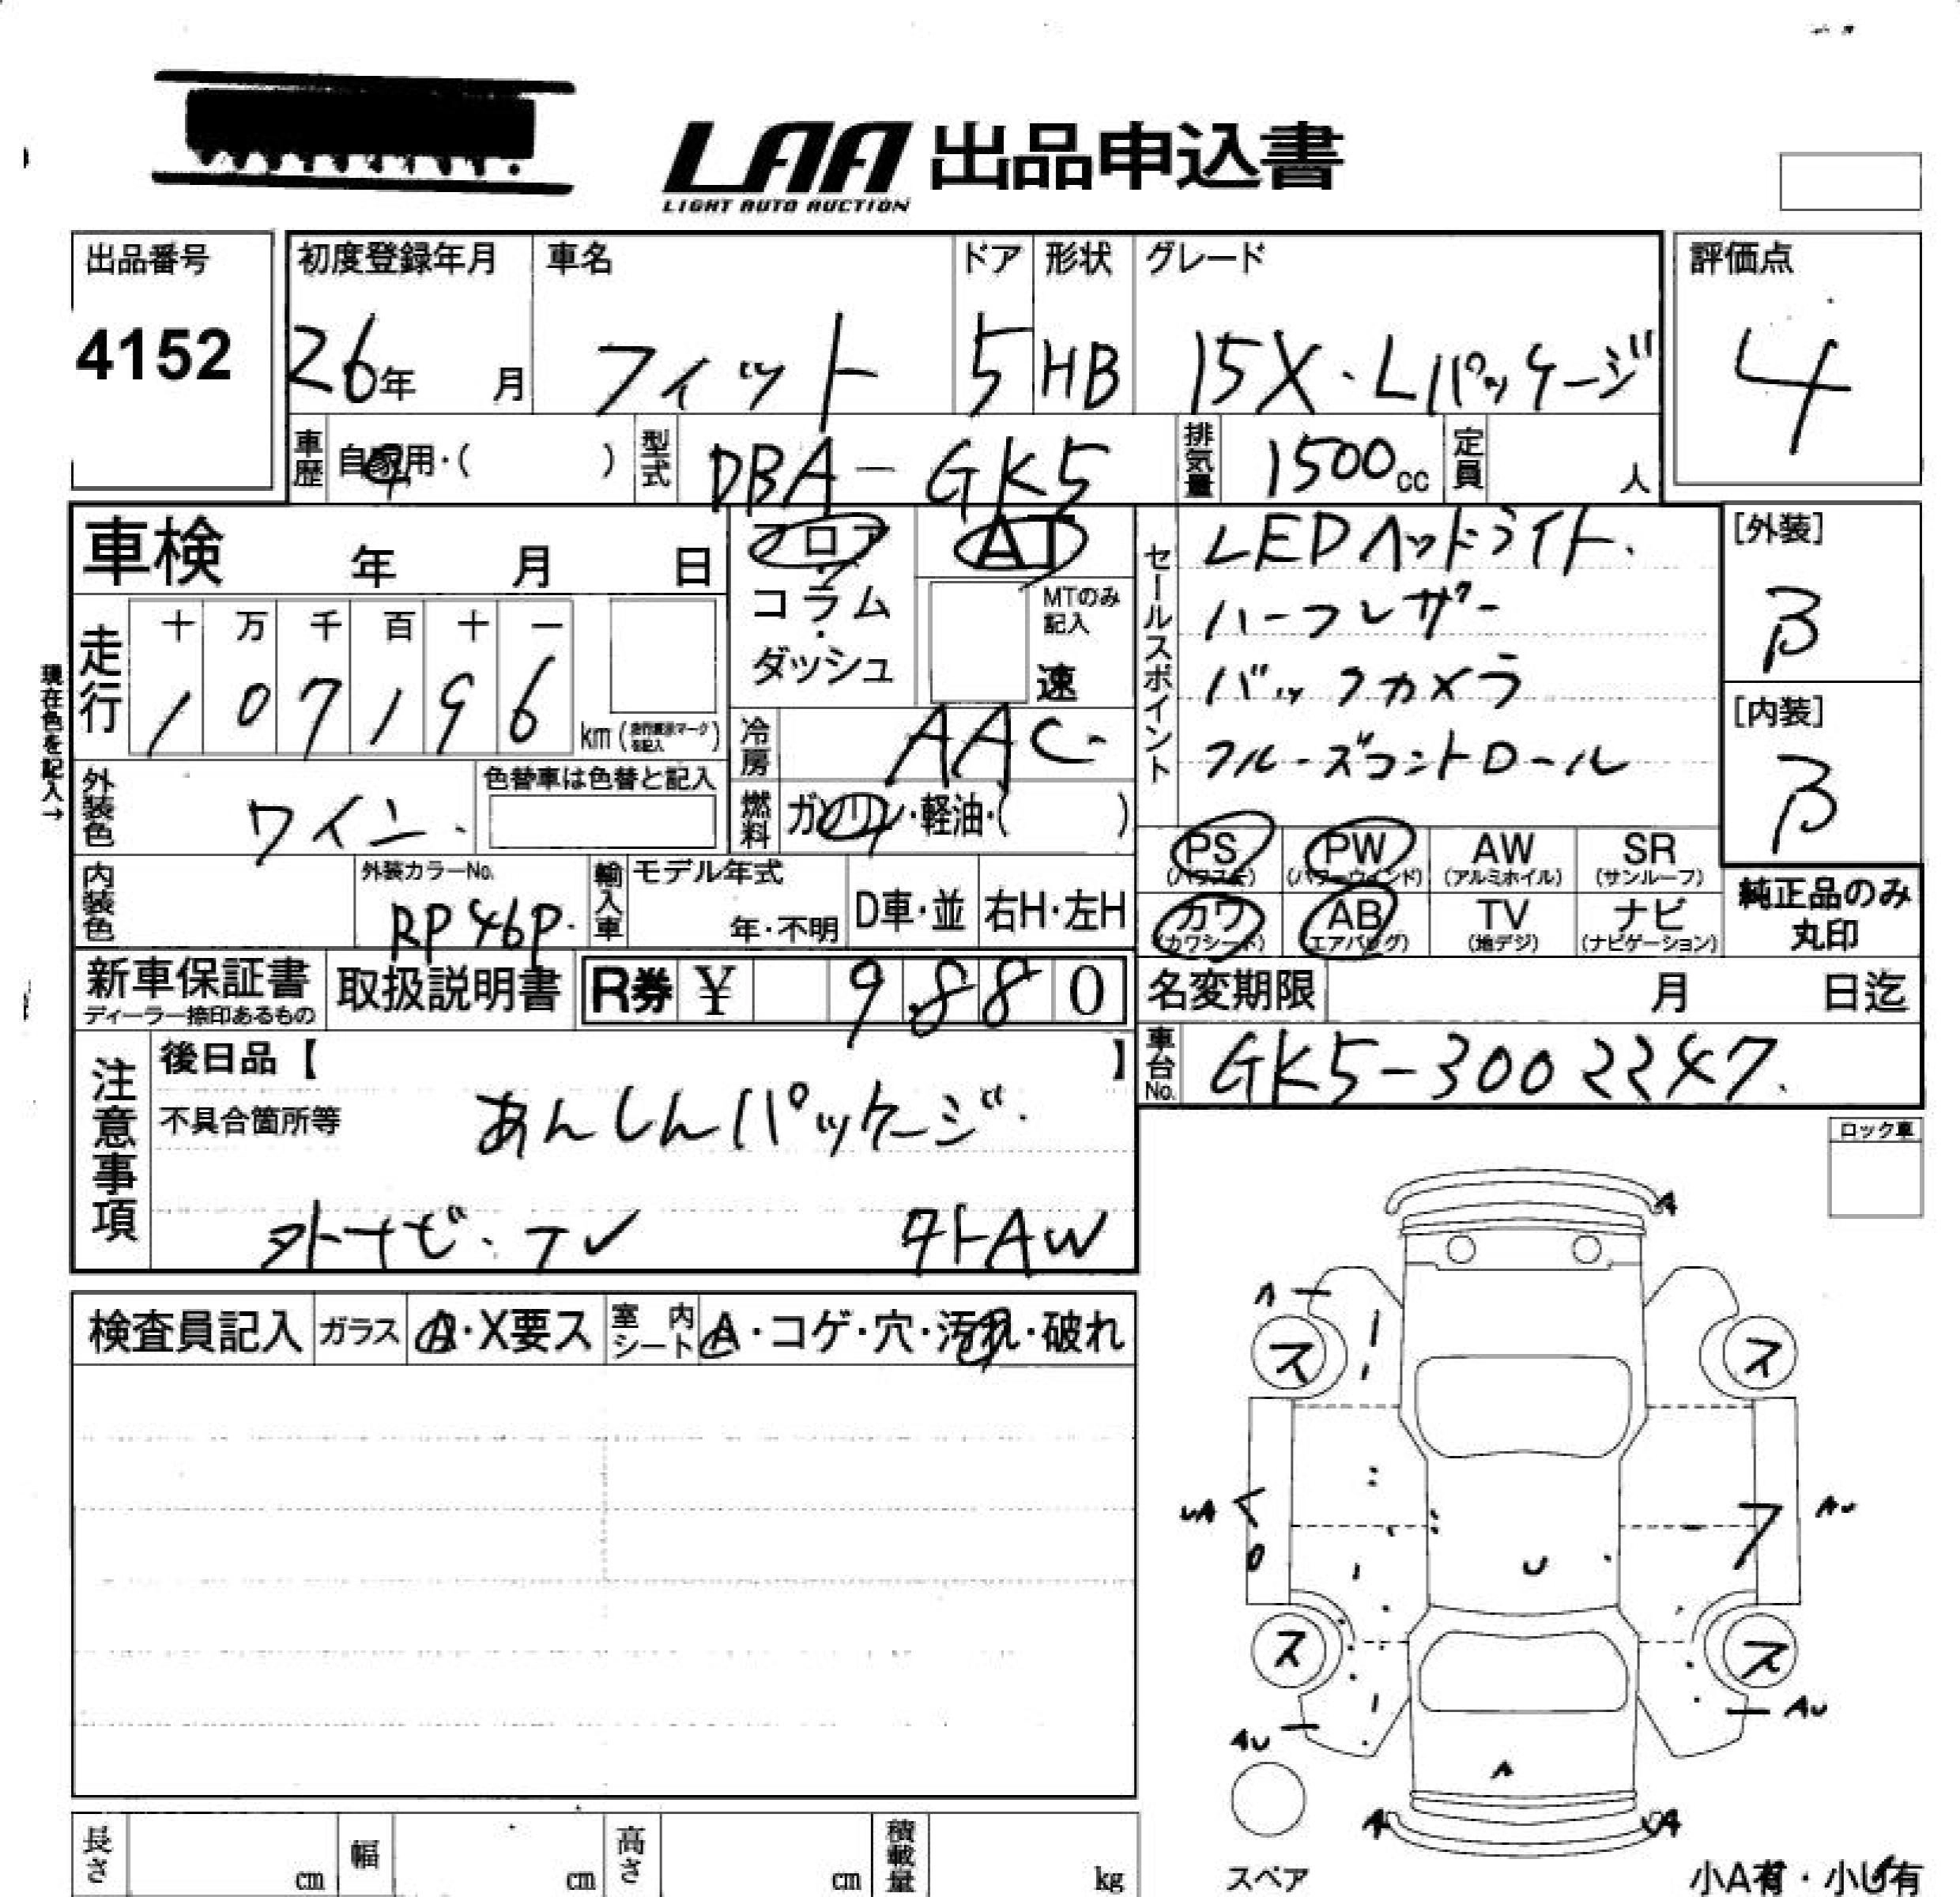 LAA 出品申込書
LIGHT AUTO AUCTION
出品番号
4152
初度登録年月
26年 月
車名
フィット
ドア
5
形状
HB
グレード
15X・Lパッケージ
評価点
4
車歴
自家用・( )
型式
DBA-GK5
排気量
1500cc
定員
人
車検 年 月 日
フロア
コラム
・
ダッシュ
AT
MTのみ
記入
速
セールスポイント
LEDヘッドライト.
ハーフレザー
バックカメラ
クルーズコントロール
[外装]
B
[内装]
B
現在色を記入→
走行
十 万 千 百 十 一
1 0 7 1 9 6
km(
を記入)
冷房
AAC
外装色
ワイン
色替車は色替と記入
燃料
ガソリン・軽油・( )
PS
(パワステ)
PW
(パワーウインド)
AW
(アルミホイル)
SR
(サンルーフ)
カワ
(カワシート)
AB
(エアバッグ)
TV
(地デジ)
ナビ
(ナビゲーション)
純正品のみ
丸印
内装色
外装カラーNo.
RP46P
輸入車
モデル年式
年・不明
D車・並
右H・左H
新車保証書
ディーラー捺印あるもの
取扱説明書
R券 ¥ 9,880
名変期限 月 日迄
車台No.
GK5-3002247
注意事項
後日品【 】
不具合箇所等
あんしんパッケージ
外ナビ・TV 外AW
ロック車
検査員記入
ガラス
A・X要ス
室内シート
A・コゲ・穴・汚れ・破れ
A
A
ス
ス
UA
AU
U
ス
ス
AU
AU
A
A
UA
スペア
小A有・小U有
長さ cm
幅 cm
高さ cm
積載量 kg